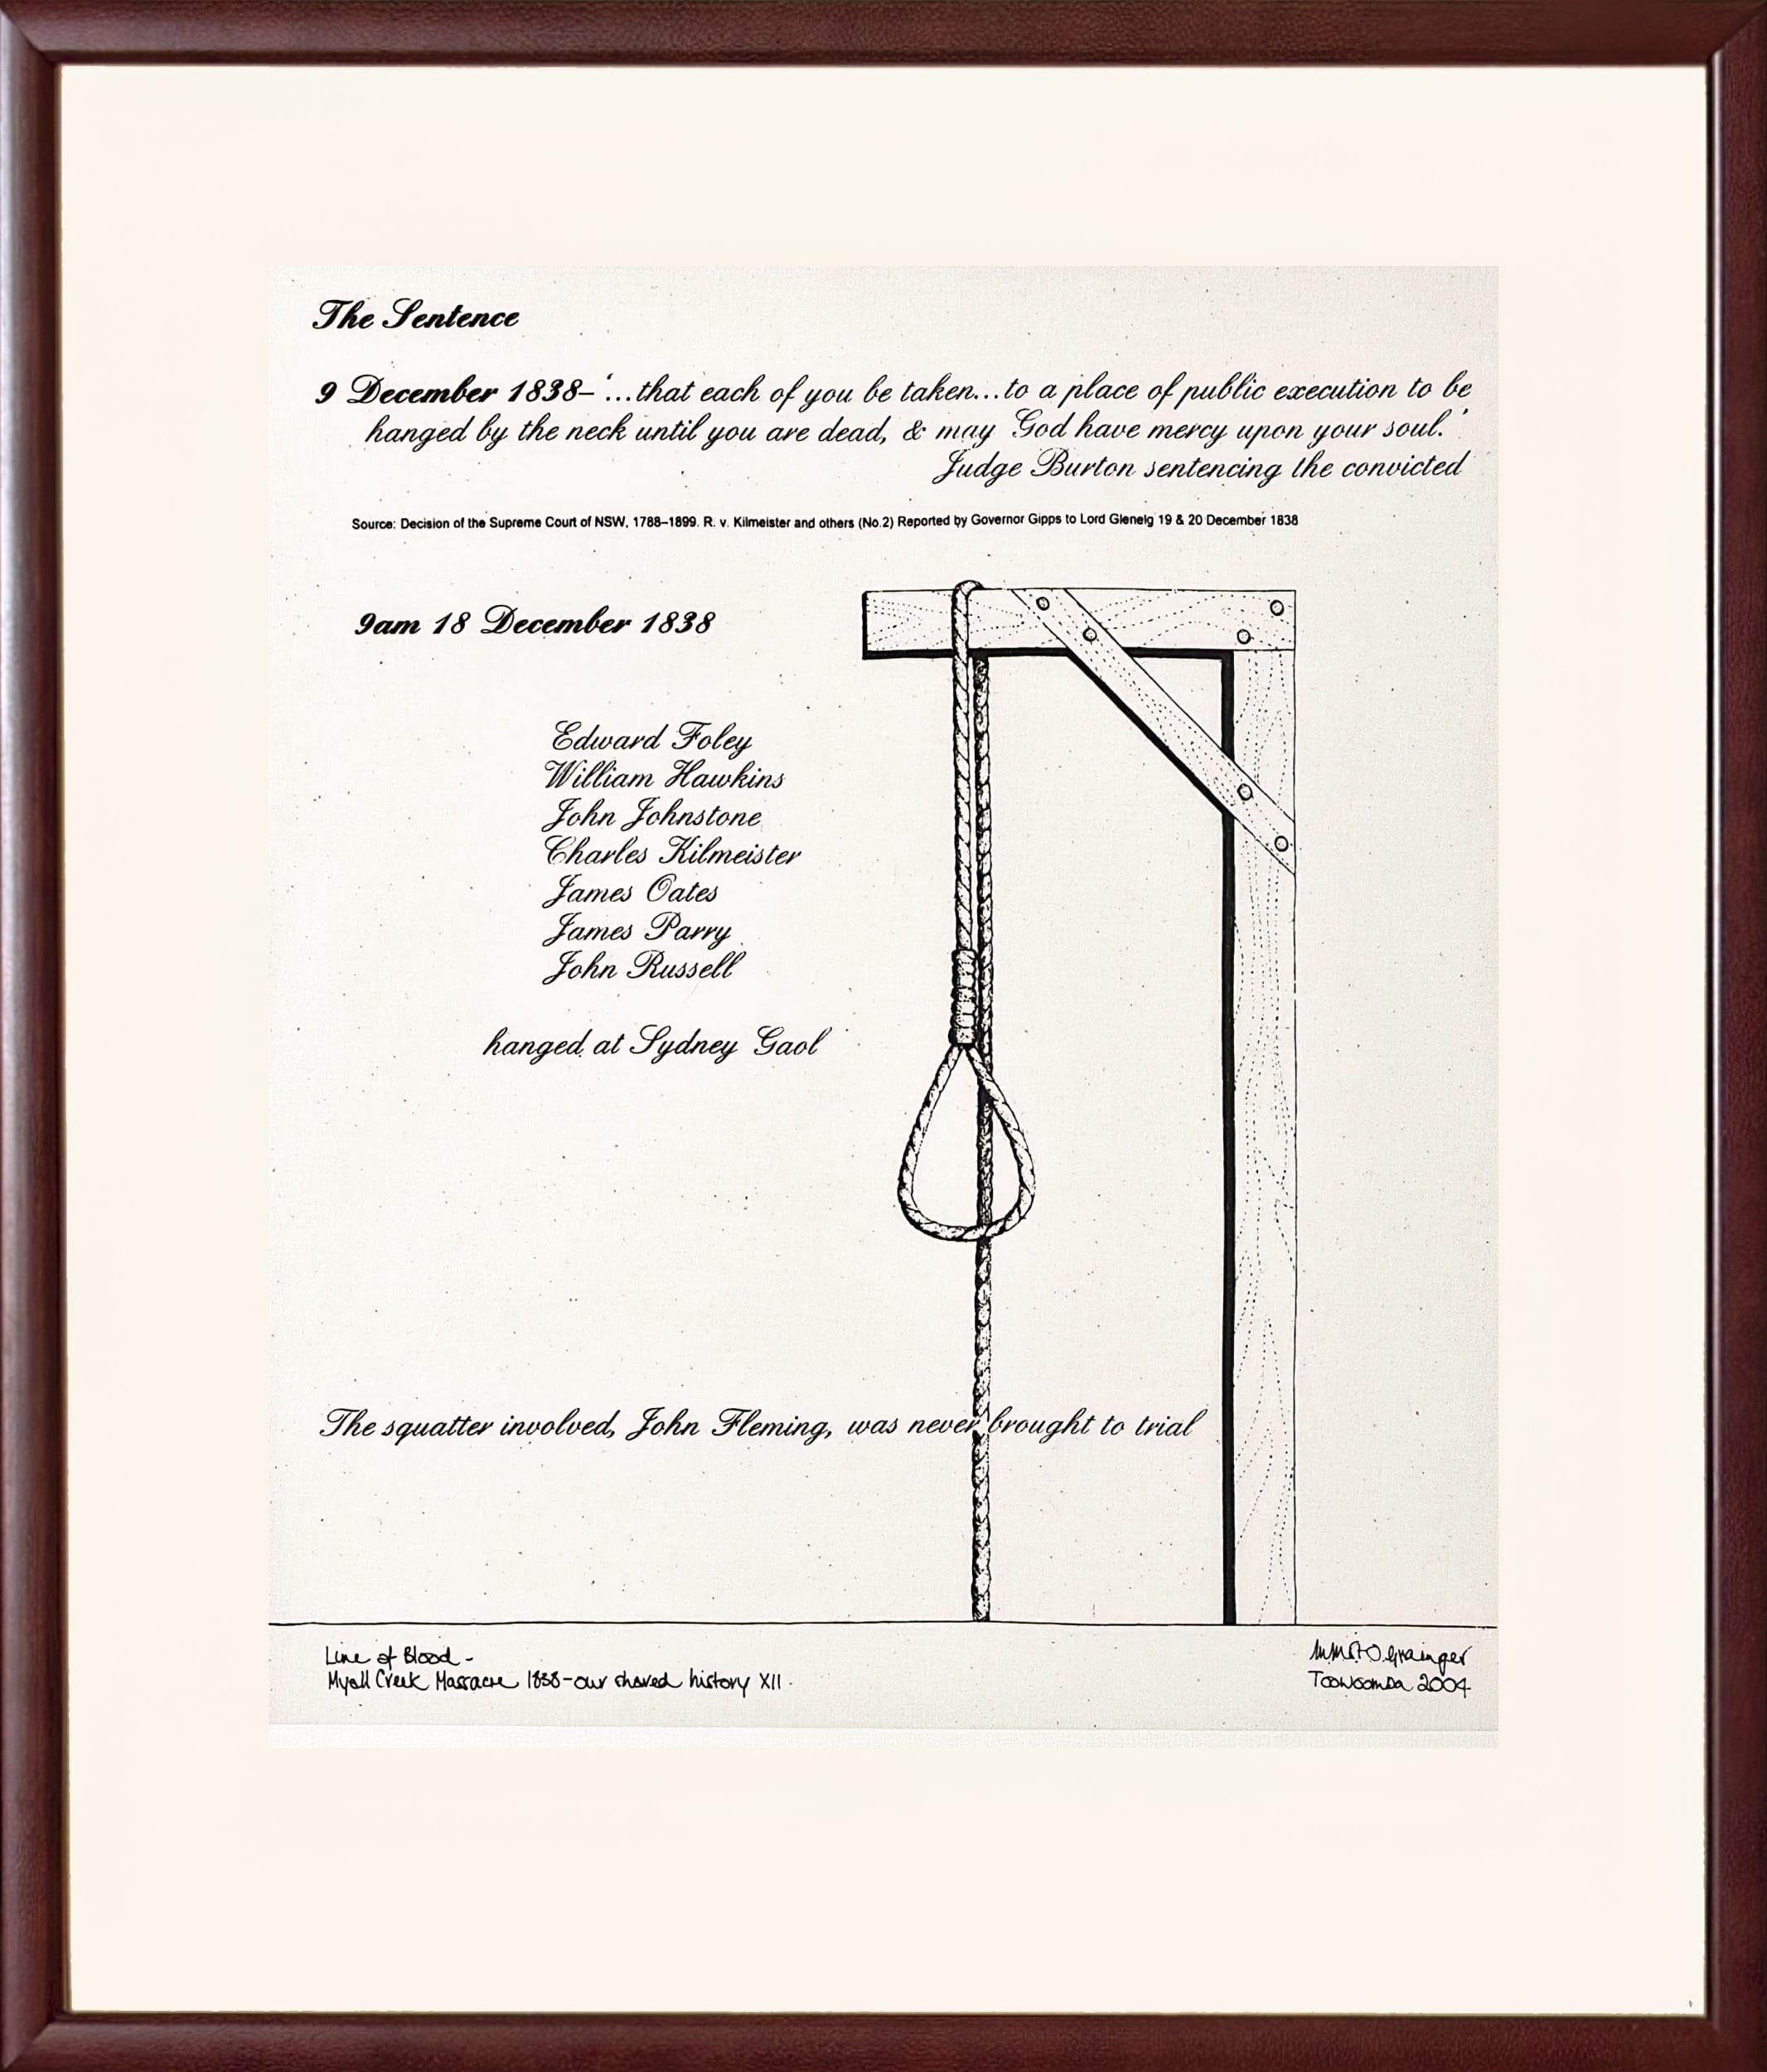 The Sentence
9 December 1838– '...that each of you be taken...to a place of public execution to be
hanged by the neck until you are dead, & may God have mercy upon your soul.'
Judge Burton sentencing the convicted
Source: Decision of the Supreme Court of NSW, 1788–1899. R. v. Kilmeister and others (No.2) Reported by Governor Gipps to Lord Glenelg 19 & 20 December 1838
9am 18 December 1838
Edward Foley
William Hawkins
John Johnstone
Charles Kilmeister
James Oates
James Parry
John Russell
hanged at Sydney Gaol
The squatter involved, John Fleming, was never brought to trial
Line of Blood -
Myall Creek Massacre 1838-our shared history XII
Grainger
Toowoomba 2004